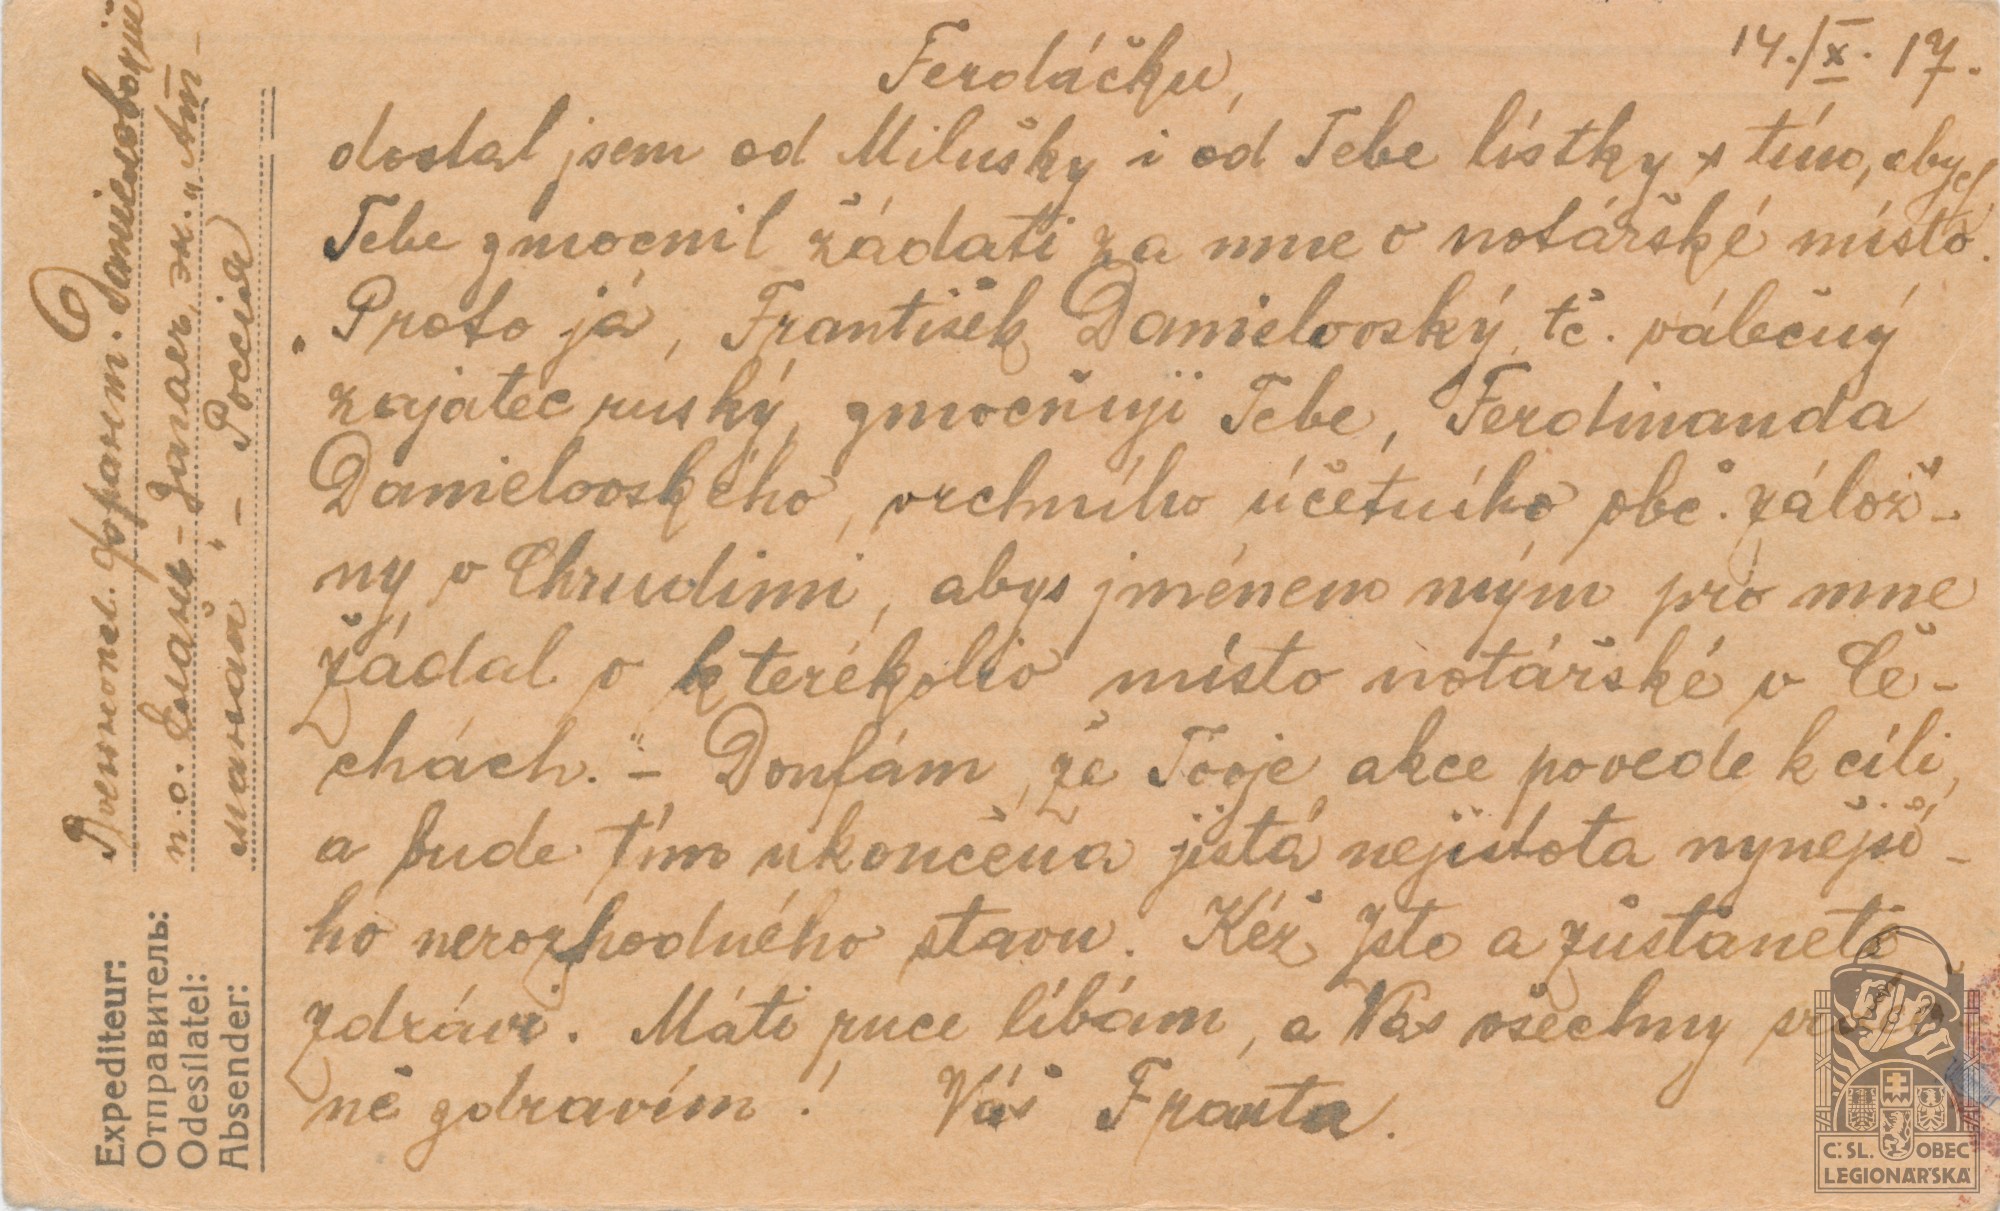 14./X. 17.
Ferdáčku,
dostal jsem od Milušky i od Tebe lístky s tím, abych
Tebe zmocnil žádati za mne o notářské místo.
Proto já, František Danielovský, tč. válečný
zajatec ruský, zmocňuji Tebe, Ferdinanda
Danielovského, vrchního účetního obč. zálož-
ny v Chrudimi, abys jménem mým pro mne
žádal o kterékoliv místo notářské v Če-
chách. – Doufám, že Tvoje akce povede k cíli,
a bude tím ukončena jistá nejistota nynější-
ho nerozhodného stavu. Kéž jste a zůstanete
zdrávi. Máti ruce líbám, a Vás všechny
ně zdravím! Váš Franta.
Военнопл. Франт. Даниловский
п.о. Елань-
-Россия
Expéditeur:
Отправитель:
Odesílatel:
Absender:
Č. SL. OBEC
LEGIONÁŘSKÁ